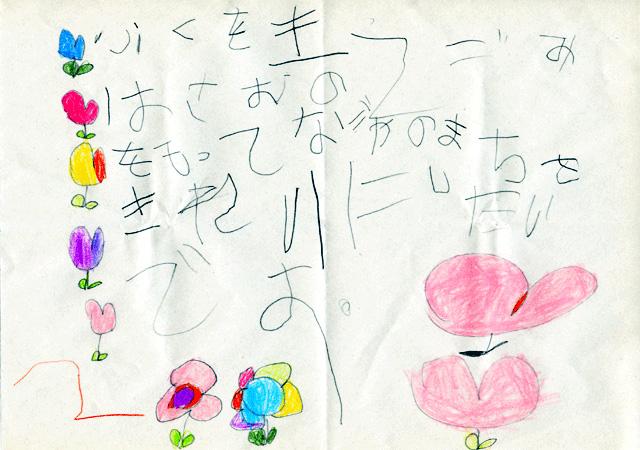 ふくをきて ごみ
はさむの
をもってなごやのまちを
きれいにしたい
です。